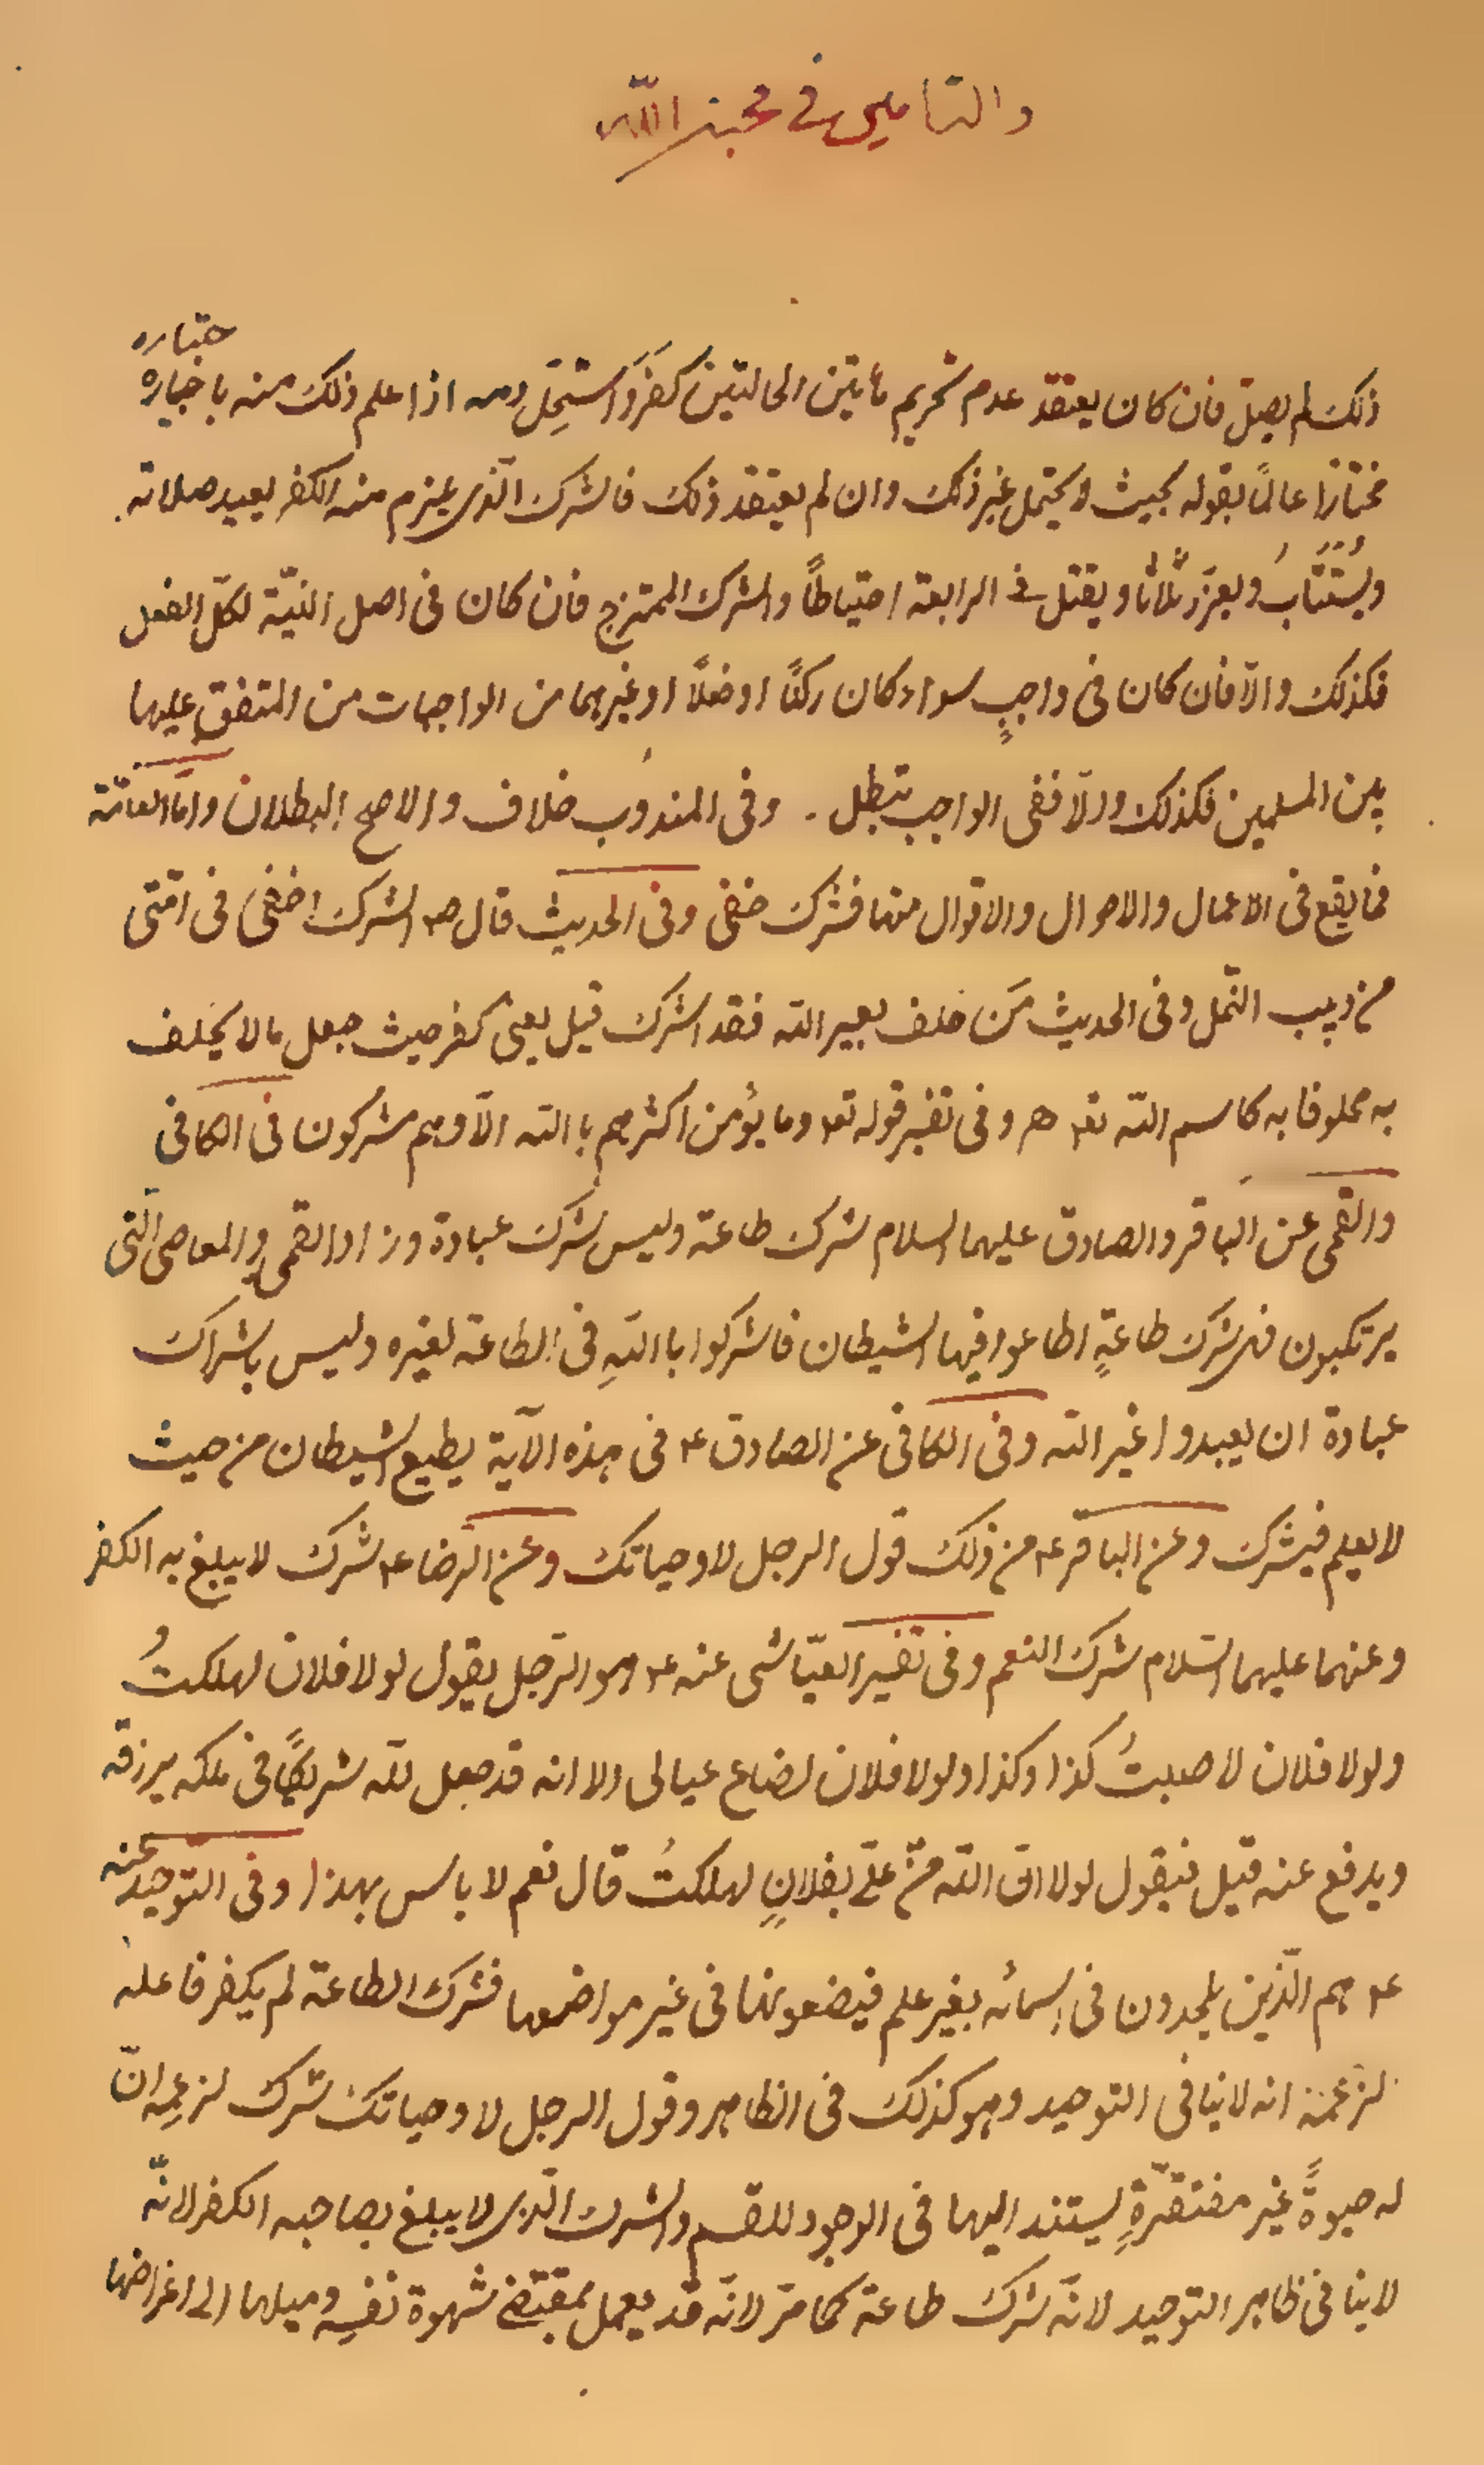 والتامين في محبة الله
ختياره
ذلك لم يصل فان كان يعتقد عدم تحريم هاتين الحالتين كفر واستحل دمه اذا علم ذلك منه باخياره
مختارًا عالمًا بقوله بحيث لا يحتمل غير ذلك وان لم يعتقد ذلك فالشرك الذى يلزم منه الكفر يعيد صلاته
ويُستتابُ ويعزر ثلاثا ويقتل في الرابعة احتياطًا والشرك الممتزج فان كان فى اصل النيّة لكلّ الفعل
فكذلك والّا فان كان فى واجبٍ سواء كان ركنًا او فعلًا او غيرهما من الواجبات من المتفق عليها
بين المسلمين فكذلك والّا ففى الواجب تبطل . وفى المندوب خلاف والاصح البطلان وامّا الثالثة
فما يقع فى الاعمال والاحوال والاقوال منها فشرك خفى وفى الحديث قال ص الشرك اخفى فى امّتى
من دبيب النّمل وفى الحديث مَن حلف بغير الله فقد اشرك قيل يعنى كفر حيث جعل ما لا يحلف
به محلوفا به كاسم الله تع هر وفى تفسير قوله تع وما يؤمن اكثرهم باالله الّا وهم مشركون فى الكافى
والقمى عن الباقر والصادق عليهما السلام شرك طاعة وليس شرك عبادة وزاد القمى والمعاصى الّتى
يرتكبون فهى شرك طاعةٍ اطاعوا فيها الشيطان فاشركوا باالله فى الطاعة لغيره وليس باشراك
عبادة ان يعبدوا غير الله وفى الكافى عن الصادق ع فى هذه الآية يطيع الشيطان من حيث
لا يعلم فيشرك وعن الباقر ع من ذلك قول الرجل لا وحياتك وعن الرّضا ع شرك لا يبلغ به الكفر
وعنهما عليهما السّلام شرك النعم وفى تفسير العيّاشى عنه ع وهو الرّجل يقول لولا فلان لهلكتُ
ولولا فلان لاصبتُ كذا وكذا ولولا فلان لضاع عيالى الا انه قد جعل لله شريكًا فى ملكه يرزقه
ويدفع عنه قيل فيقول لولا انّ الله منّ علىّ بفلانٍ لهلكتُ قال نعم لا باس بهذا وفى التوحيد عنه
ع هم الّذين يلحدون فى اسمائه بغير علم فيضعونها فى غير مواضعها فشرك الطاعة لم يكفر فاعله
لزعمه انه لا ينافى التوحيد وهو كذلك فى الظاهر وقول الرجل لا وحياتك شرك لزعمِه انّ
له حيوةً غير مفتقرةٍ يستند اليها فى الوجود للقسم والشرك الّذى لا يبلغ بصاحبه الكفر لانّه
لا ينافى ظاهر التوحيد لانّه شرك طاعة كما مرّ لانّه قد يعمل بمقتضى شهوة نفسِه وميلها الى اغراضها